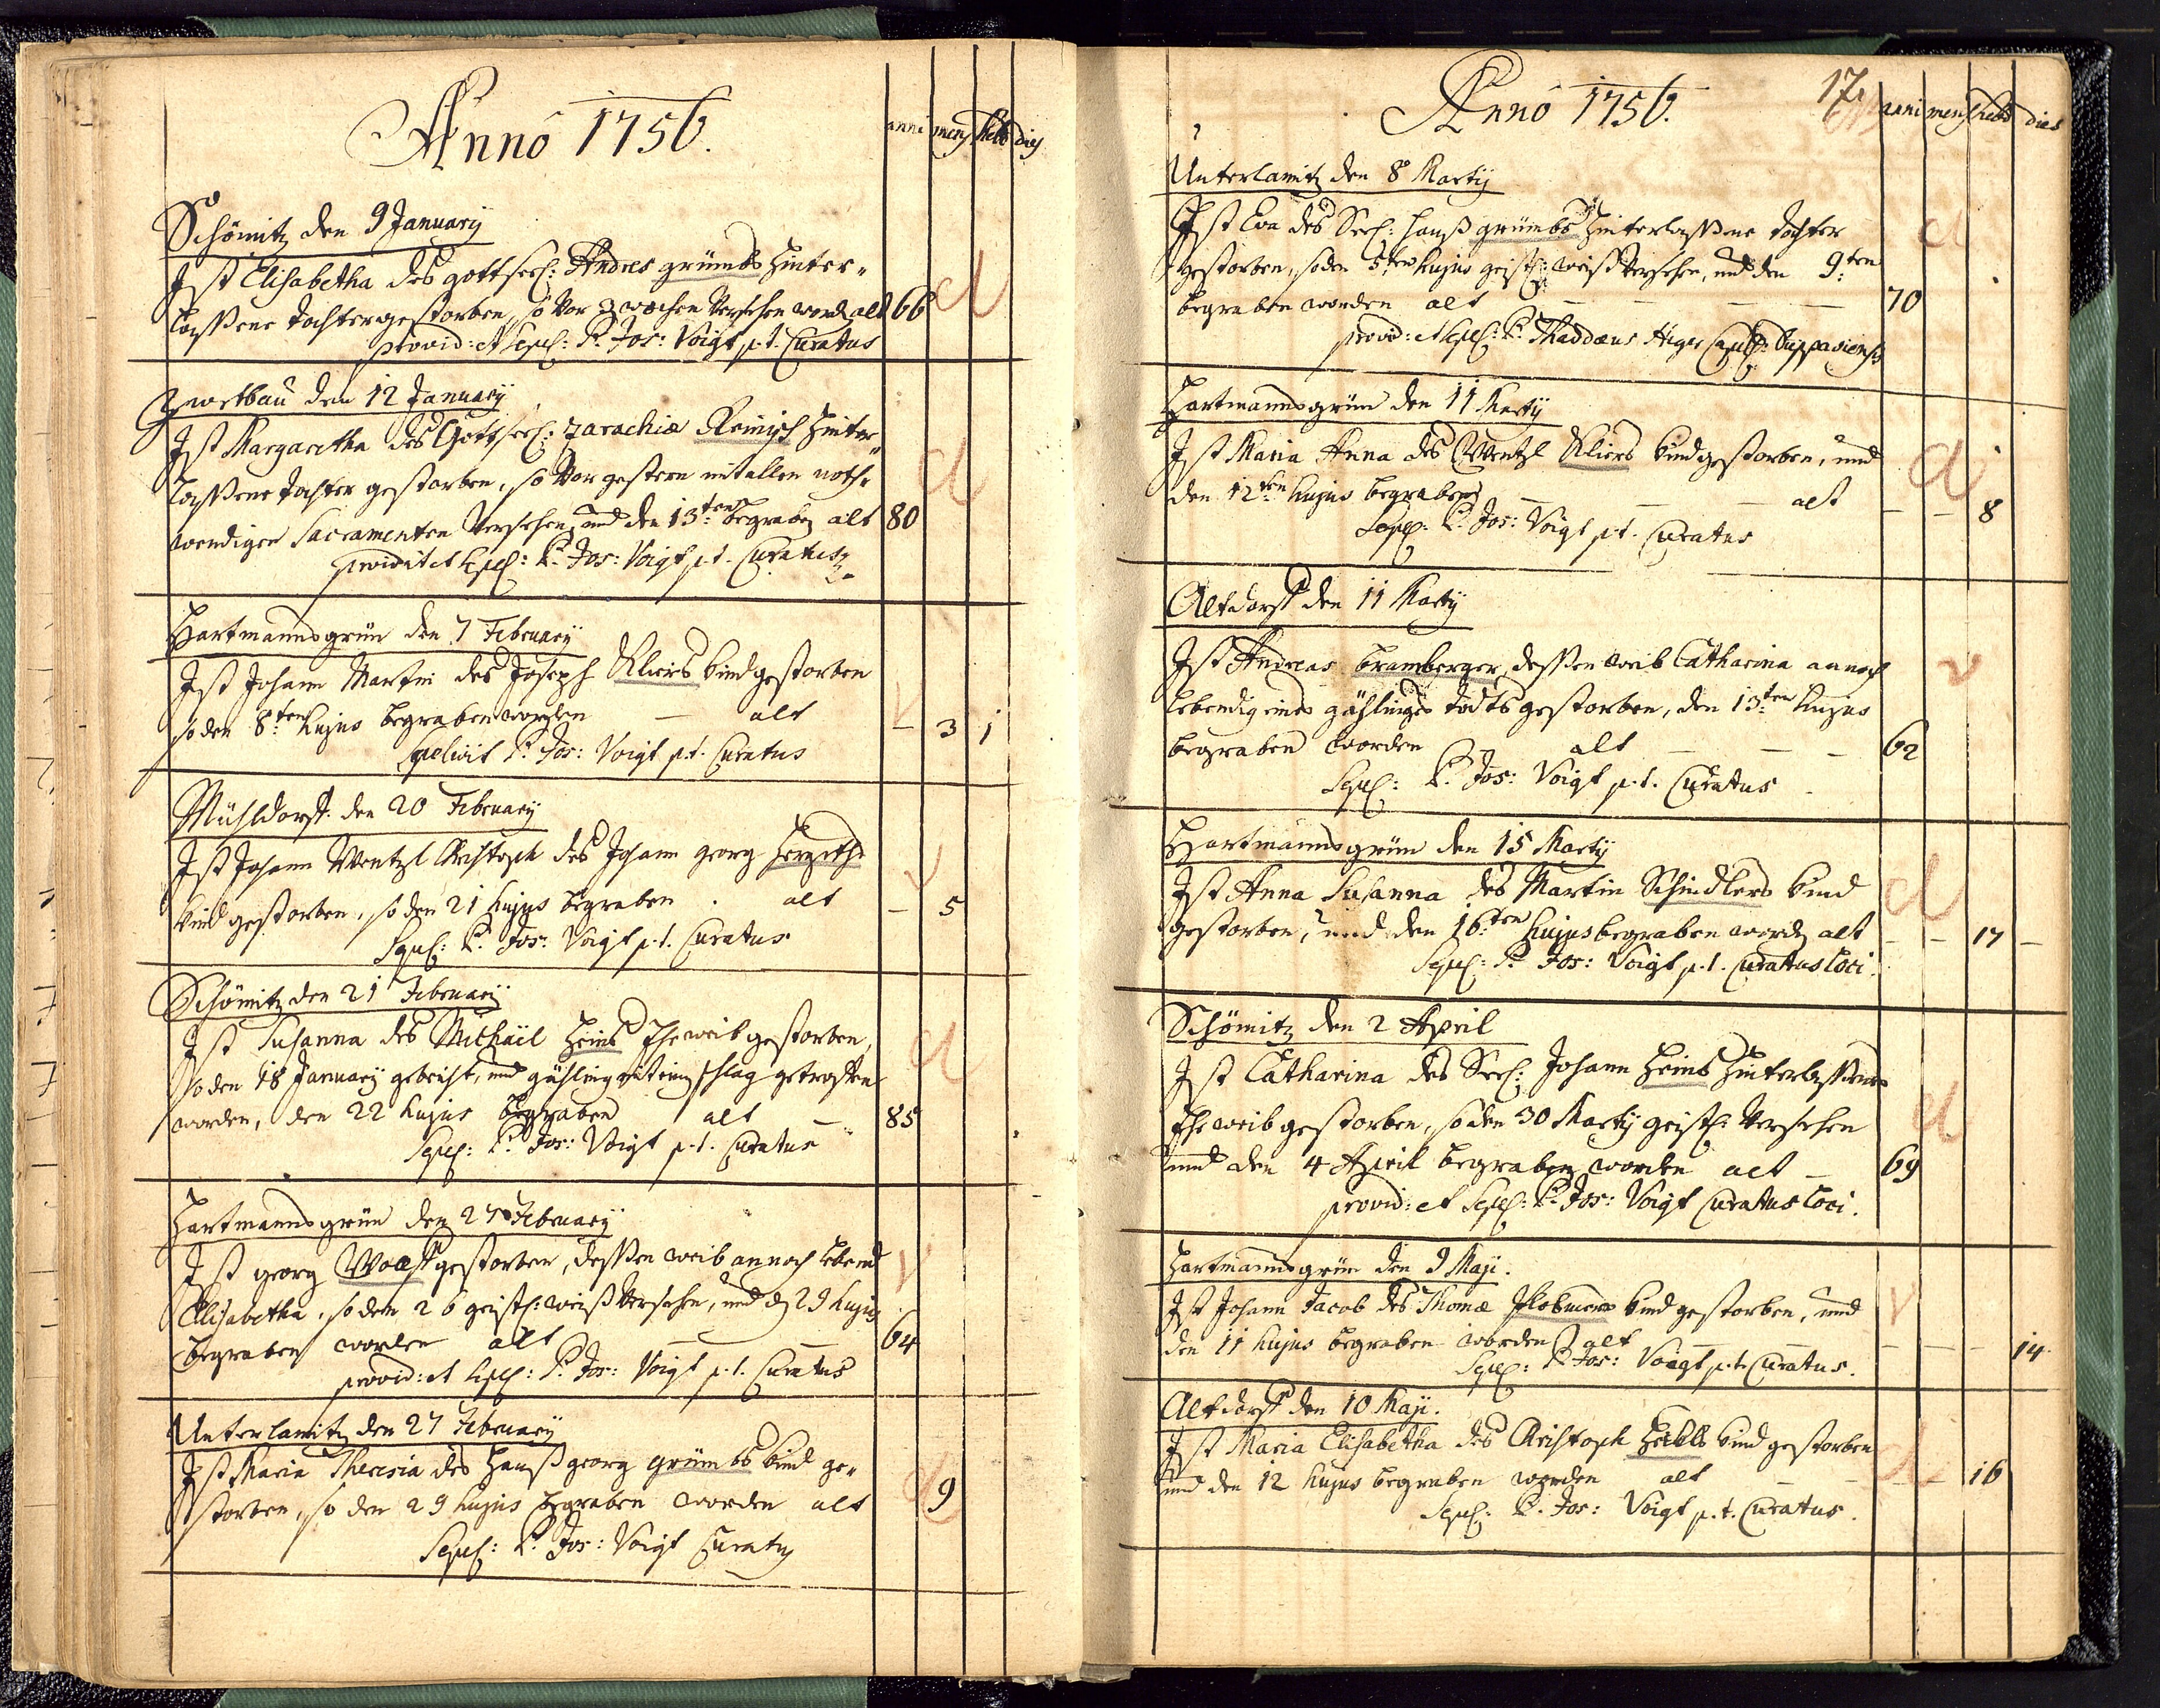 Anno 1756.
anni mens hebd dies
Schömitz den 9 January
Ist Elisabetha des gottseel: Andres grümbs hinter„
lassene tochter gestorben, so vor 3 wochen versehen word alt 66
provid: et sepel: P. Jos: Voigt p.t. Curatus
Zwetbau den 12 January
Ist Margaretha des Gottseel: Zarachiæ Reinisch hinter„
lassene tochter gestorben, so vor gestern mit allen noth„
wendigen Sacramenten versehen, und den 13ten begraben alt 80
providit et sepel: P. Jos: Voigt p.t. Curatus
Hartmansgrün den 7 February
Ist Johann Martin des Joseph Kliers kind gestorben
so den 8ten hujus begraben worden — alt — 3 1
Sepelivit P. Jos: Voigt p.t. Curatus
Mühldorff den 20 February
Ist Johann Wentzl Christoph des Johann georg
kind gestorben, so den 21 hujus begraben . alt — 5
Sepel: P. Jos: Voigt p.t. Curatus
Schömitz den 21 February
Ist Susanna des Michäel Heins Eheweib gestorben,
so den 18 January gebeicht, und gähling mit ein schlag getroffen
worden, den 22 hujus begraben alt — 85
Sepel: P. Jos: Voigt p.t. Curatus
Hartmansgrün den 27 February
Ist georg Wolff gestorben, dessen weib annoch lebend
Elisabetha, so den 26 geistl: weiß versehen, und d 29 hujus
begraben worden alt — — 64
provid: et sepel: P. Jos: Voigt p.t. Curatus
Unterlamitz den 27 February
Ist Maria Theresia des Hanß georg grümbs kind ge„
storben, so den 29 hujus begraben worden alt 9
Sepel: P. Jos: Voigt Curatus
17
Anno 1756.
anni mens hebd dies
Unterlamitz den 8 Martij
Ist Eva des Seel: Hanß grümbs hinterlassene tochter
gestorben, so den 5ten hujus geistl: weiß versehen, und den 9ten
begraben worden alt — — — — 70
provid: et sepel: P. Thaddæus Capell:
Hartmansgrün den 11 Martij
Ist Maria Anna des Wentzl Kliers kind gestorben, und
den 12ten hujus begraben — — alt — — 8
Sepel: P. Jos: Voigt p.t. Curatus
Altdorff den 11 Martij
Ist Andreas bramberger, dessen weib Catharina annoch
lebendig eines gählinges tods gestorben, den 13ten hujus
begraben worden alt — — — 62
Sepel: P. Jos: Voigt p.t. Curatus
Hartmansgrün den 15 Martij
Ist Anna Susanna des Martin Schindlers kind
gestorben, und den 16ten hujus begraben word alt — — 17 —
Sepel: P. Jos: Voigt p.t. Curatus loci.
Schömitz den 2 April
Ist Catharina des Seel: Johann Heins hinterlassenes
Eheweib gestorben, so den 30 Martij geistl: versehen
und den 4 April begraben worden alt — 69
provid: et Sepel: P. Jos: Voigt Curatus loci.
Hartmansgrün den 9 Maji.
Ist Johann Jacob des Thomæ kind gestorben, und
den 11 hujus begraben worden alt — — — — 14
Sepel: P. Jos: Voigt p.t. Curatus.
Altdorff den 10 Maji.
Ist Maria Elisabetha des Christoph kind gestorben
und den 12 hujus begraben worden alt — — 16
Sepel: P. Jos: Voigt p.t. Curatus.